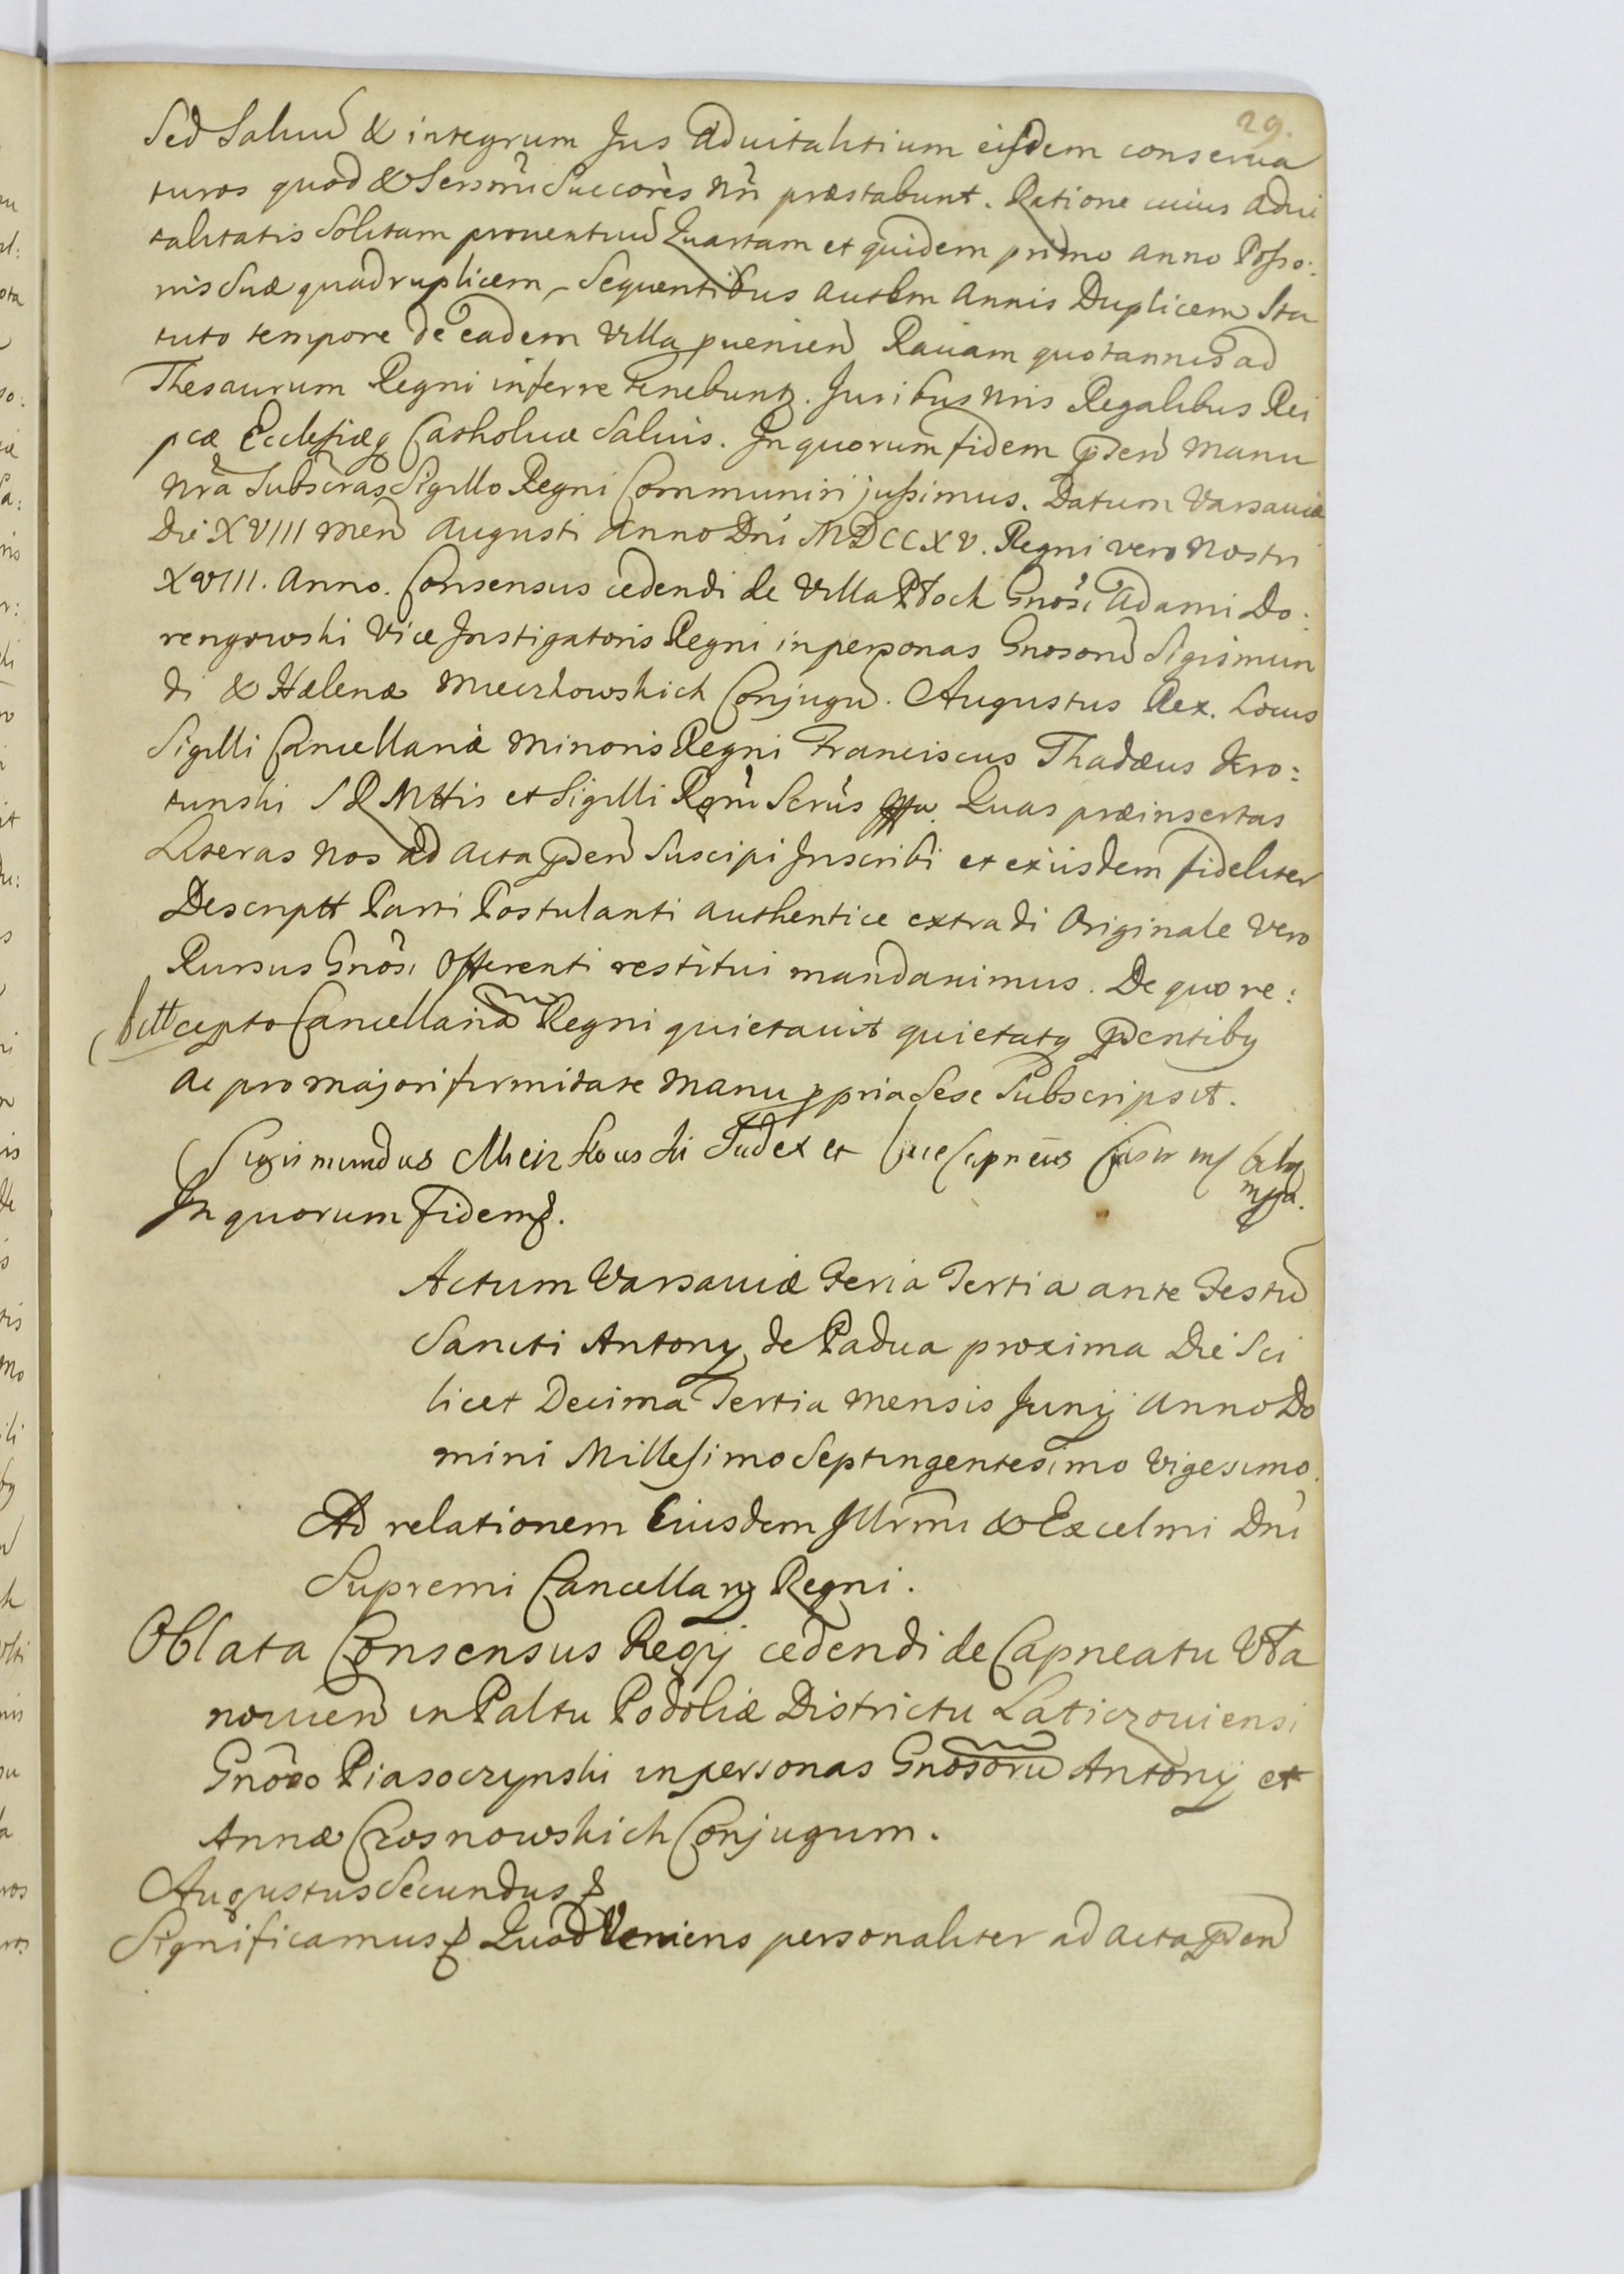 29.
Sed Salvũ & integrum Jus Advitalitium eisdem conserva
turos quod & Sersmi Succores Nri præstabunt. Ratione cuius advi
talitatis Solitam proventuũ Quartam et quidem primo anno Posso:
nis Suæ quadruplicem, Sequentibus autem Annis Duplicem Sta
tuto tempore de eadem Villa pvenien Ravam quotannis ad
Thesaurum Regni inferre tenebuntr. Juribus Nris Regalibus Rei
pcæ Ecclesiæq Catholicæ Salvis. In quorum fidem pnden Manu
Nra Subscras Sigillo Regni Communiri jussimus. Datum Varsaviæ
Die XVIII Men Augusti Anno Dni MDCCXV. Regni vero Nostri
XVIII. Anno. Consensus cedendi de Villa Ptoch Gnosi Adami Do:
rengowski Vice Instigatoris Regni in personas Gnosorũ Sigismun
di & Hælenæ Mieczkowskich Conjugũ. Augustus Rex. Locus
Sigilli Cancellariæ Minoris Regni Franciscus Thadæus Kro:
tunski S R Mttis et Sigilli Regni Scrius Quas præinsertas
Literas Nos ad Acta pnden Suscipi Inscribi et exiisdem fideliter
Descriptt Parti Postulanti authentice extradi Originale Vero
Rursus Gnosi Offerenti restitui mandavimus. De quo re:
cepto Cancellariã Regni quietavit quietatq pndentibq
Ac pro majori firmitate Manu ppria Sese Subscripsit.
Sigismundus Mieczkowski Judex et
mpp.
In quorum fidem &.
Actum Varsaviæ Feria Tertia ante Festũ
Sancti Antony de Padua proxima Die Sci
licet Decima Tertia Mensis Junij Anno Do
mini Millesimo Septingentesimo Vigesimo.
Ad relationem Eiusdem Illrmi & Excelmi Dni
Supremi Cancellarij Regni.
Oblata Consensus Regij cedendi de Capneatu Vta
novien in Paltu Podoliæ Districtu Laticzoviensi
Gnoso Piasoczynski in personas Gnosorũ Antonij et
Annæ Czosnowskich Conjugum.
Augustus Secundus &
Significamus & Quod Veniens personaliter ad acta pnden